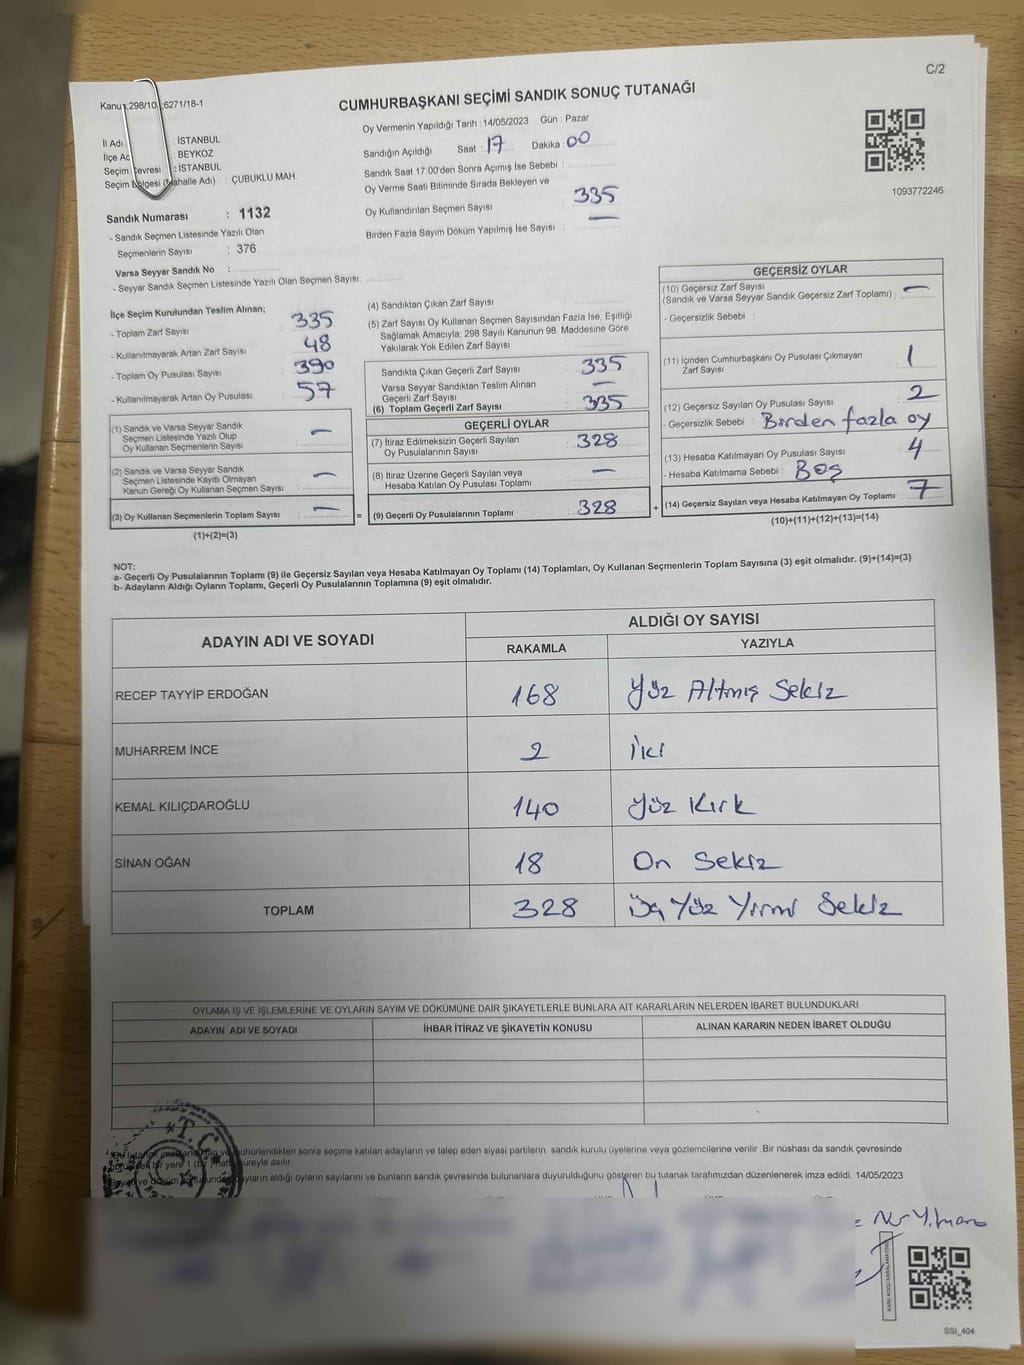 C/2
CUMHURBAŞKANI SEÇİMİ SANDIK SONUÇ TUTANAĞI
Kanu 298/10 6271/18-1
İl Adı : İSTANBUL
İlçe Ad : BEYKOZ
Seçim Çevresi : İSTANBUL
Seçim Bölgesi (Mahalle Adı) : ÇUBUKLU MAH.
Sandık Numarası : 1132
- Sandık Seçmen Listesinde Yazılı Olan
Seçmenlerin Sayısı : 376
Varsa Seyyar Sandık No :
- Seyyar Sandık Seçmen Listesinde Yazılı Olan Seçmen Sayısı:
Oy Vermenin Yapıldığı Tarih : 14/05/2023 Gün : Pazar
Sandığın Açıldığı Saat : 17 Dakika : 00
Sandık Saat 17.00'den Sonra Açımış İse Sebebi :
Oy Verme Saati Bitiminde Sırada Bekleyen ve
Oy Kullandırılan Seçmen Sayısı : 335
Birden Fazla Sayım Döküm Yapılmış İse Sayısı : —
1093772246
İlçe Seçim Kurulundan Teslim Alınan;
- Toplam Zarf Sayısı : 335
- Kullanılmayarak Artan Zarf Sayısı : 48
- Toplam Oy Pusulası Sayısı : 390
- Kullanılmayarak Artan Oy Pusulası : 57
(1) Sandık ve Varsa Seyyar Sandık
Seçmen Listesinde Yazılı Olup
Oy Kullanan Seçmenlerin Sayısı : —
(2) Sandık ve Varsa Seyyar Sandık
Seçmen Listesinde Kayıtlı Olmayan
Kanun Gereği Oy Kullanan Seçmen Sayısı : —
(3) Oy Kullanan Seçmenlerin Toplam Sayısı : —
(1)+(2)=(3)
=
(4) Sandıktan Çıkan Zarf Sayısı
(5) Zarf Sayısı Oy Kullanan Seçmen Sayısından Fazla İse, Eşitliği
Sağlamak Amacıyla; 298 Sayılı Kanunun 98. Maddesine Göre
Yakılarak Yok Edilen Zarf Sayısı
Sandıkta Çıkan Geçerli Zarf Sayısı : 335
Varsa Seyyar Sandıktan Teslim Alınan
Geçerli Zarf Sayısı : —
(6) Toplam Geçerli Zarf Sayısı : 335
GEÇERLİ OYLAR
(7) İtiraz Edilmeksizin Geçerli Sayılan
Oy Pusulalarının Sayısı : 328
(8) İtiraz Üzerine Geçerli Sayılan veya
Hesaba Katılan Oy Pusulası Toplamı : —
(9) Geçerli Oy Pusulalarının Toplamı : 328
+
GEÇERSİZ OYLAR
(10) Geçersiz Zarf Sayısı
(Sandık ve Varsa Seyyar Sandık Geçersiz Zarf Toplamı) : —
- Geçersizlik Sebebi :
(11) İçinden Cumhurbaşkanı Oy Pusulası Çıkmayan
Zarf Sayısı : 1
(12) Geçersiz Sayılan Oy Pusulası Sayısı : 2
- Geçersizlik Sebebi : Birden fazla oy
(13) Hesaba Katılmayan Oy Pusulası Sayısı : 4
- Hesaba Katılmama Sebebi : Boş
(14) Geçersiz Sayılan veya Hesaba Katılmayan Oy Toplamı : 7
(10)+(11)+(12)+(13)=(14)
NOT:
a- Geçerli Oy Pusulalarının Toplamı (9) ile Geçersiz Sayılan veya Hesaba Katılmayan Oy Toplamı (14) Toplamları, Oy Kullanan Seçmenlerin Toplam Sayısına (3) eşit olmalıdır. (9)+(14)=(3)
b- Adayların Aldığı Oyların Toplamı, Geçerli Oy Pusulalarının Toplamına (9) eşit olmalıdır.
ADAYIN ADI VE SOYADI ALDIĞI OY SAYISI
RAKAMLA YAZIYLA
RECEP TAYYİP ERDOĞAN 168 Yüz Altmış Sekiz
MUHARREM İNCE 2 İki
KEMAL KILIÇDAROĞLU 140 Yüz Kırk
SİNAN OĞAN 18 On Sekiz
TOPLAM 328 Üç Yüz Yirmi Sekiz
OYLAMA İŞ VE İŞLEMLERİNE VE OYLARIN SAYIM VE DÖKÜMÜNE DAİR ŞİKAYETLERLE BUNLARA AİT KARARLARIN NELERDEN İBARET BULUNDUKLARI
ADAYIN ADI VE SOYADI İHBAR İTİRAZ VE ŞİKAYETİN KONUSU ALINAN KARARIN NEDEN İBARET OLDUĞU
T.C.
sonra seçime katılan adayların ve talep eden siyasi partilerin sandık kurulu üyelerine veya gözlemcilerine verilir. Bir nüshası da sandık çevresinde
bir yere 1 süreyle asılır.
aldığı oyların sayılarını ve bunların sandık çevresinde bulunanlara duyurulduğunu gösteren bu tutanak tarafımızdan düzenlenerek imza edildi. 14/05/2023
SSİ_404